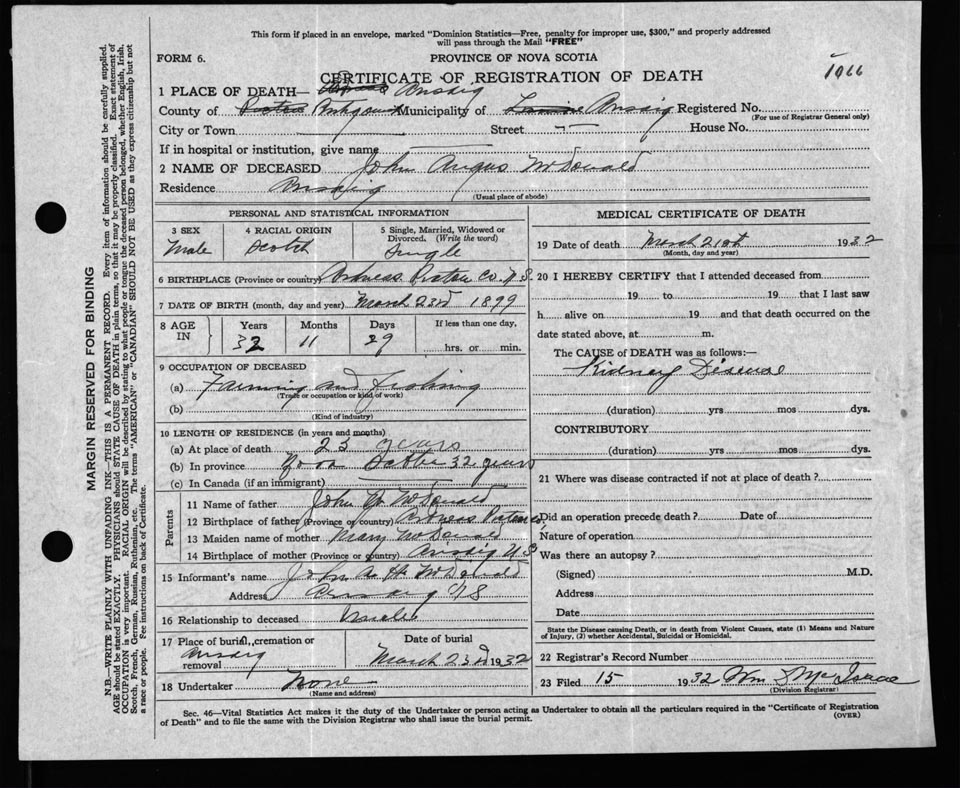 This form if placed in an envelope, marked "Dominion Statistics—Free, penalty for improper use, $300," and properly addressed
will pass through the Mail "FREE"
FORM 6.
PROVINCE OF NOVA SCOTIA
CERTIFICATE OF REGISTRATION OF DEATH
1066
1 PLACE OF DEATH— Arisaig
County of Antigonish Municipality of Arisaig Registered No.
(For use of Registrar General only)
City or Town Street House No.
If in hospital or institution, give name
2 NAME OF DECEASED John Angus McDonald
Residence Arisaig
(Usual place of abode)
PERSONAL AND STATISTICAL INFORMATION
3 SEX Male
4 RACIAL ORIGIN Scotch
5 Single, Married, Widowed or Divorced. (Write the word) Single
6 BIRTHPLACE (Province or country) Pictou Co. N.S.
7 DATE OF BIRTH (month, day and year) March 23rd 1899
8 AGE IN Years 32 Months 11 Days 29 If less than one day, hrs. or min.
9 OCCUPATION OF DECEASED
(a) Farming and Fishing
(Trade or occupation or kind of work)
(b)
(Kind of industry)
10 LENGTH OF RESIDENCE (in years and months)
(a) At place of death 23 years
(b) In province Nova Scotia 32 years
(c) In Canada (if an immigrant)
Parents
11 Name of father John McDonald
12 Birthplace of father (Province or country) Pictou Co.
13 Maiden name of mother Mary McDonald
14 Birthplace of mother (Province or country) Arisaig N.S
15 Informant's name John A. H. McDonald
Address Arisaig N S
16 Relationship to deceased Uncle
17 Place of burial, cremation or removal Arisaig
Date of burial March 23rd 1932
18 Undertaker None
(Name and address)
MEDICAL CERTIFICATE OF DEATH
19 Date of death March 21st 1932
(Month, day and year)
20 I HEREBY CERTIFY that I attended deceased from
19 to 19 that I last saw
h alive on 19 and that death occurred on the
date stated above, at m.
The CAUSE of DEATH was as follows:—
Kidney Disease
(duration) yrs mos dys.
CONTRIBUTORY
(duration) yrs. mos. dys.
21 Where was disease contracted if not at place of death?
Did an operation precede death? Date of
Nature of operation
Was there an autopsy?
(Signed) M.D.
Address
Date
State the Disease causing Death, or in death from Violent Causes, state (1) Means and
Nature of Injury, (2) whether Accidental, Suicidal or Homicidal.
22 Registrar's Record Number
23 Filed 15 1932 Wm J McIsaac
(Division Registrar)
Sec. 46—Vital Statistics Act makes it the duty of the Undertaker or person acting as Undertaker to obtain all the particulars required in the "Certificate of Registration
of Death" and to file the same with the Division Registrar who shall issue the burial permit.
(OVER)
MARGIN RESERVED FOR BINDING
N.B.—WRITE PLAINLY WITH UNFADING INK—THIS IS A PERMANENT RECORD. Every item of information should be carefully supplied.
AGE should be stated EXACTLY. PHYSICIANS should STATE CAUSE OF DEATH in plain terms, so that it may be properly classified. Exact statement of
OCCUPATION is very important. RACIAL ORIGIN will be described by stating to what people or tongue the deceased person belonged, whether English, Irish,
Scotch, French, German, Russian, Ruthenian, etc. The terms "AMERICAN" or "CANADIAN" SHOULD NOT BE USED as they express citizenship but not
a race or people. See instructions on back of Certificate.